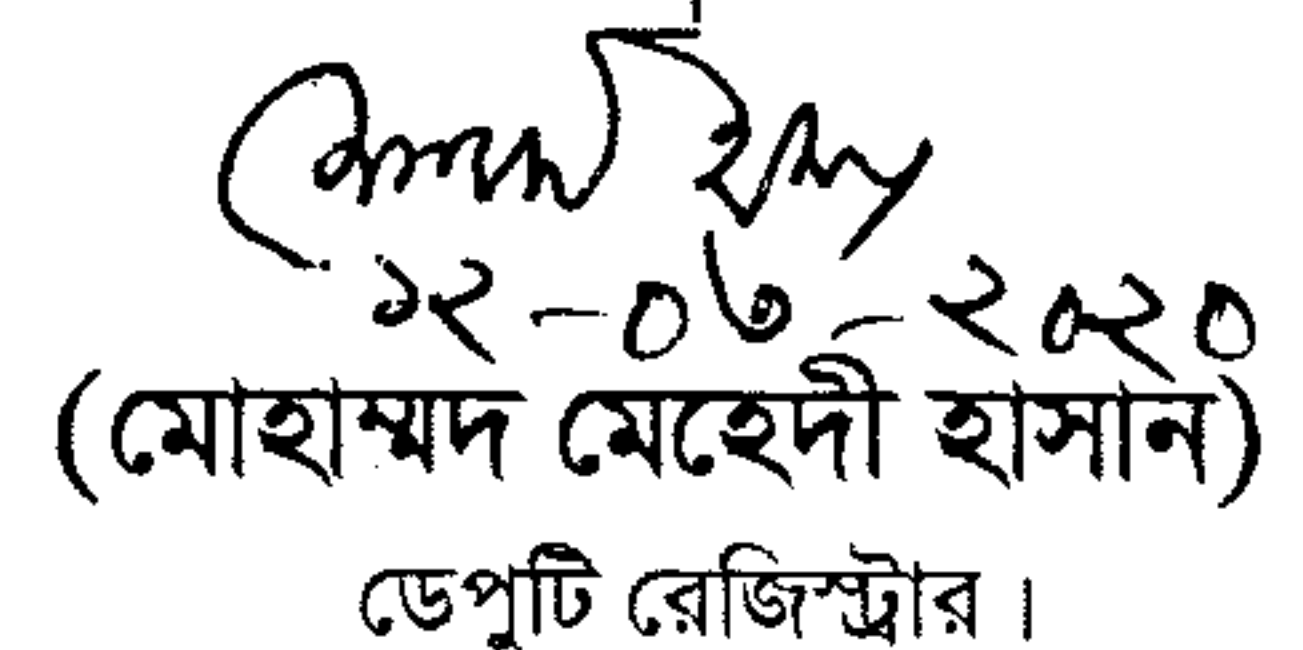 ১২-০৭-২০২০
(মোহাম্মদ মেহেদী হাসান)
ডেপুটি রেজিস্ট্রার ।